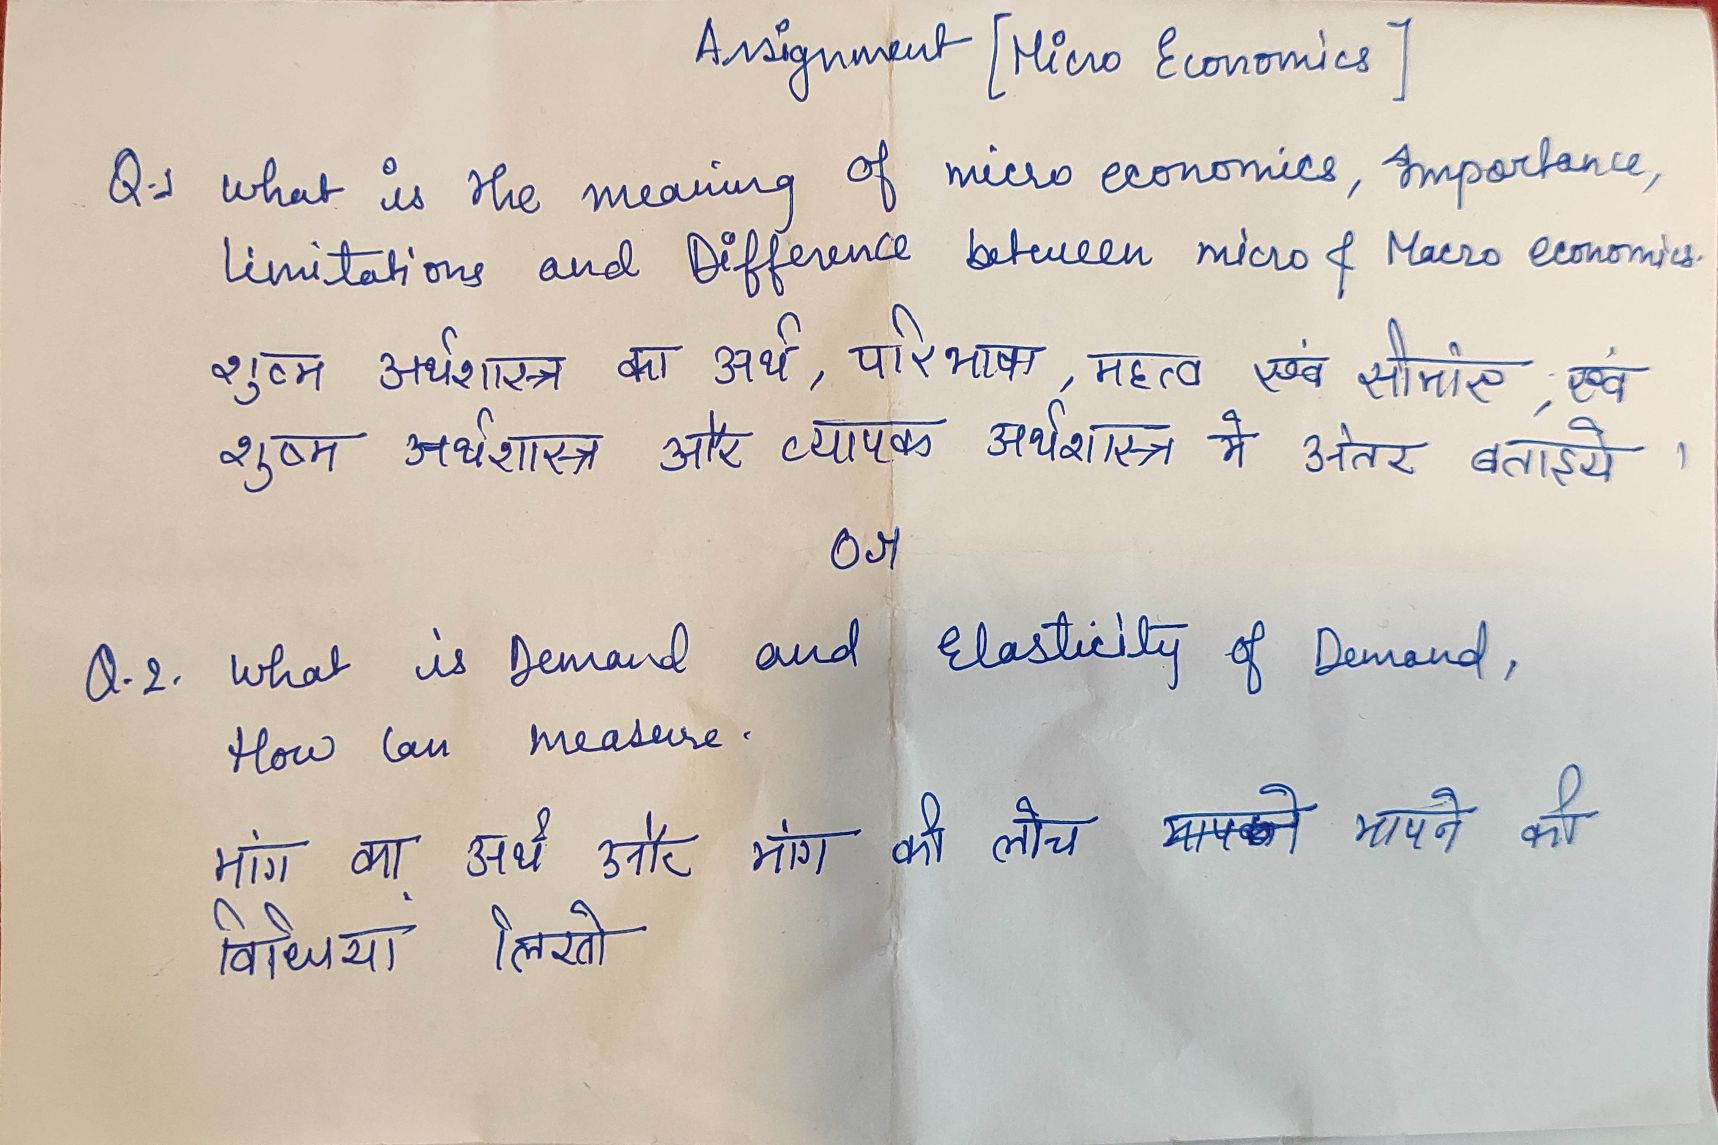 Assignment [Micro Economics]
Q.1 What is the meaning of micro economics, Importance,
limitations and Difference between micro & Macro economics.
शुष्म अर्थशास्त्र का अर्थ, परिभाषा, महत्व एवं सीमांए, एवं
शुष्म अर्थशास्त्र और व्यापक अर्थशास्त्र मे अंतर बताइये।
Or
Q.2. What is Demand and Elasticity of Demand,
How Can measure.
मांग का अर्थ और मांग की लोच मापने की
विधियां लिखो